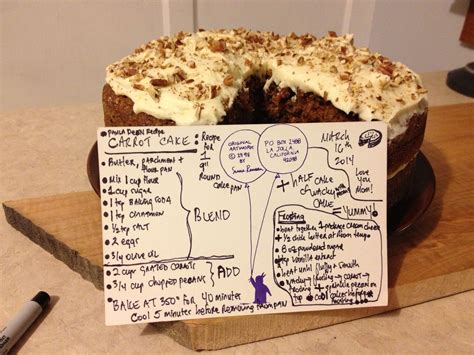 PAULA DEEN Recipe
CARROT CAKE
Recipe
for
1
9"
ROUND
CAKE PAN
Butter, parchment +
flour PAN
Mix 1 cup flour
1 cup sugar
1 tsp BAKING SODA
1 tsp cinnamon
1/2 tsp SALT
2 eggs
3/4 cup olive oil
BLEND
2 cups grated carrots
3/4 cup chopped pecans
ADD
BAKE AT 350° FOR 40 minutes
Cool 5 minutes before Removing from PAN
ORIGINAL
ARTWORK
© 1998
BY
PO BOX 2488
LA JOLLA
CALIFORNIA
92038
MARCH
16th
2014
Love you
Mom!
+ HALF CAKE
of WACKY
CAKE
= YUMMY!
Frosting
beat together 1 package cream cheese
+ 1/2 stick butter at room temp
8 oz powdered sugar
1 tsp Vanilla extract
beat until fluffy + smooth
+ sprinkle pecans on
top
cool cakes before
frosting